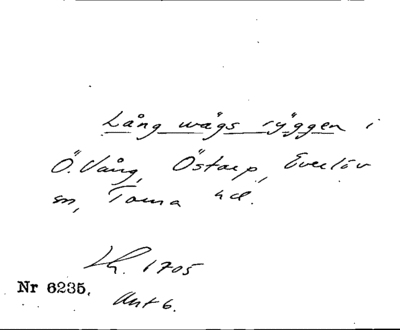 Lång wägs ryggen i
Ö. Vång, Östarp, Everlöv
sn, Torna hd.
Lh. 1705
Nr 6235.
Akt 6.